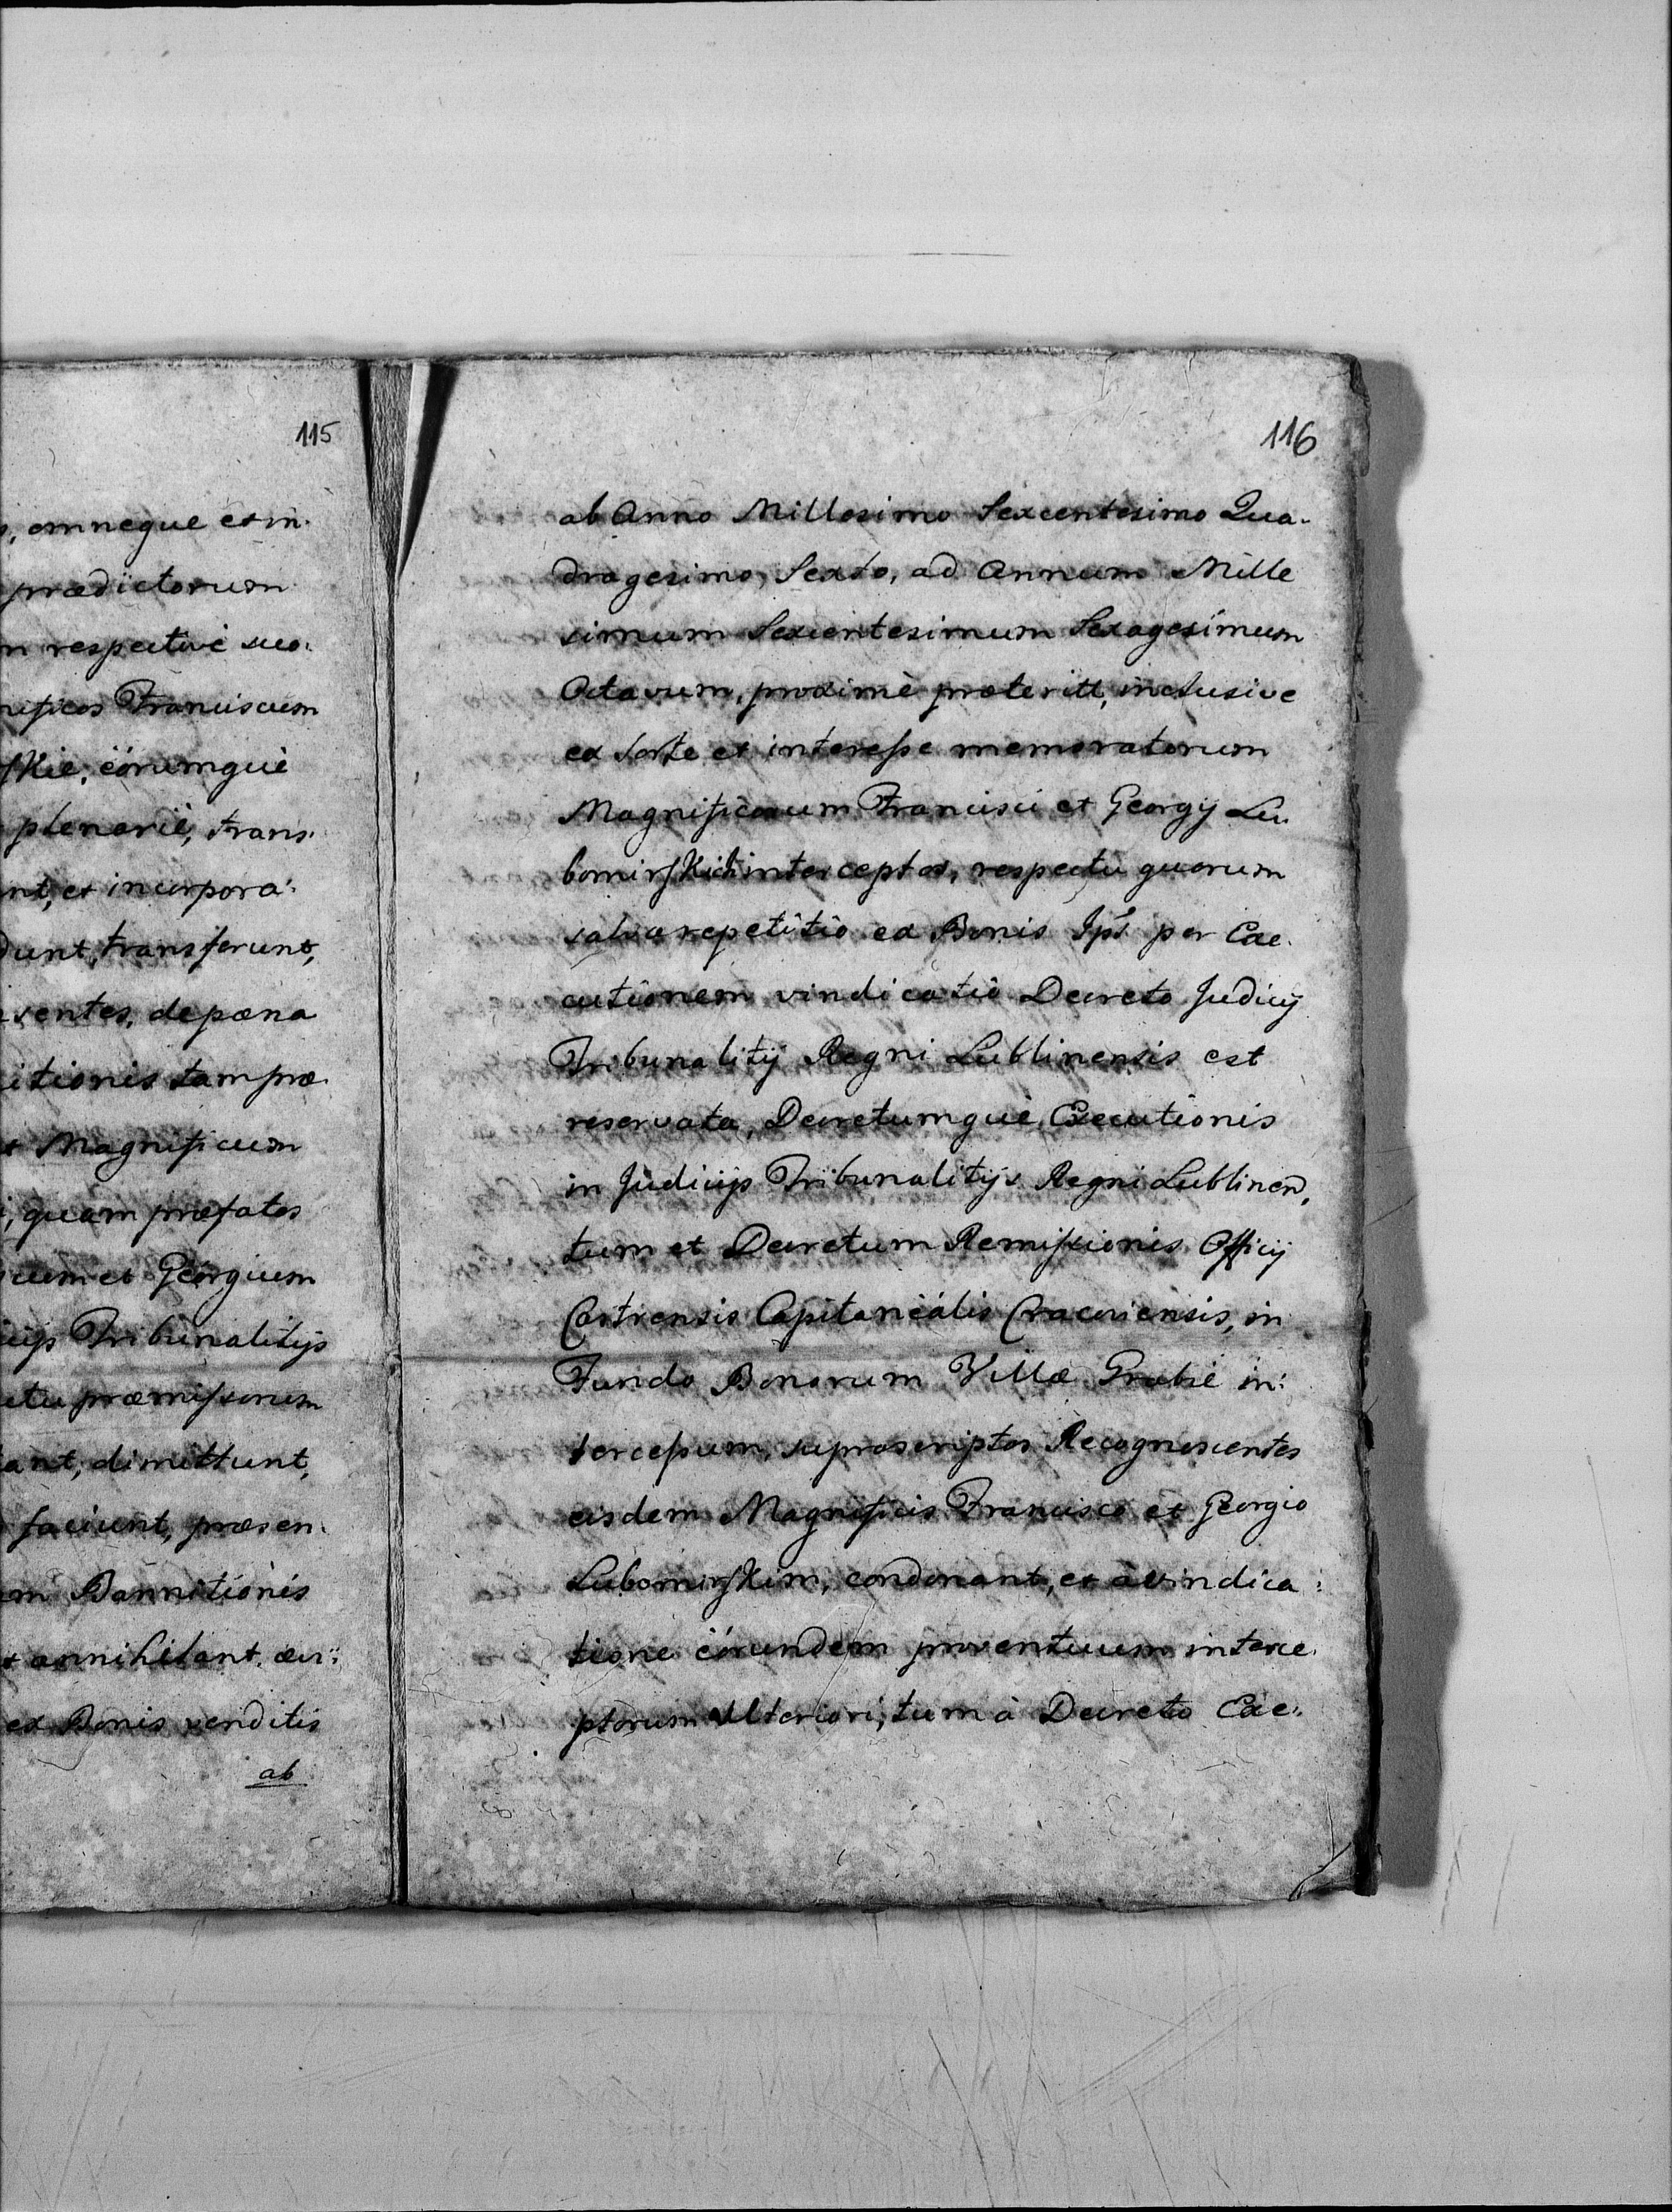 115
, omneque et in-
prædictorum
respective suo-
Franciscum
skie, eorumque
plenarie, trans-
nt, et incorpora-
dunt, transferunt,
sentes, de pæna
itionis tam præ-
Magnificum
, quam præfatos
cum et Georgium
Tribunalitijs
præmissorum
ant, dimittunt,
faciunt, præsen-
Bannitionis
annihilant,
ex Bonis venditis
ab
116
ab Anno Millesimo Sexcentesimo Qua-
dragesimo, Sexto, ad Annum Mille
simum Sexcentesimum Sexagesimum
Octavum, proximè præteritt, inclusive
ex sorte et interesse memoratorum
Magnificorum Francisci et Georgij Lu-
bomirskich interceptos, respectu quorum
salva repetitio ex Bonis Ips per Exe-
cutionem vindicatio Decreto Judicij
Tribunalitij Regni Lublinensis est
reservata, Decretumque Executionis
in Judicijs Tribunalitijs Regni Lublinen,
tum et Decretum Remissionis Officij
Castrensis Capitanealis Cracoviensis, in
Fundo Bonorum Villæ Grabie in-
tercessum, suprascriptos Recognoscentes
eisdem Magnificis Francisco et Georgio
Lubomirskim, condonant, et à vindica-
tione eorundem proventuum interce-
ptorum Ulteriori, tum à Decreto Exe-